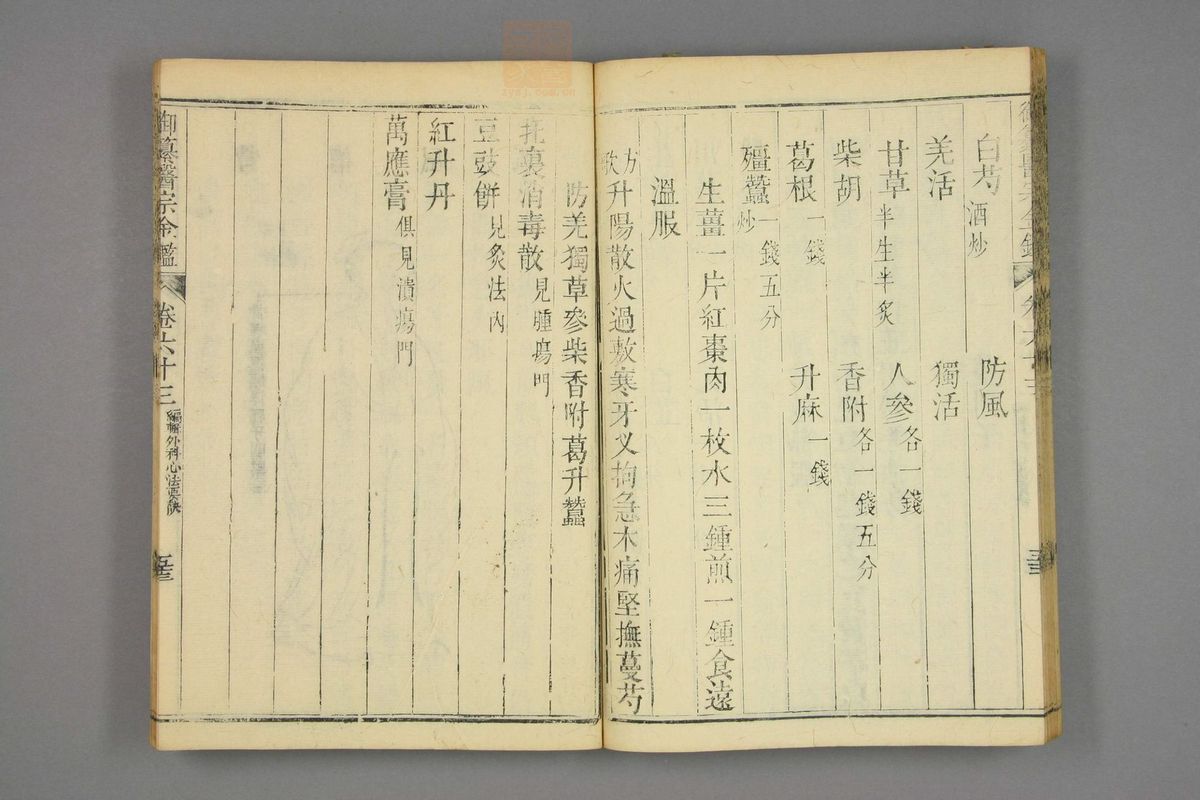 白芍酒炒　防風
羌活　獨活
甘草半生半炙　人參各一錢
柴胡　香附各一錢五分
葛根一錢　升麻一錢
殭蠶炒一錢五分
生薑一片紅棗肉一枚水三鍾煎一鍾食遠
溫服
方歌升陽散火過敷寒牙叉拘急木痛堅撫蔓芍
防羌獨草參柴香附葛升蠶
托裏消毒散見腫瘍門
豆豉餅見灸法內
紅升丹
萬應膏俱見潰瘍門
御纂醫宗金鑑　卷六十三　編輯外科心法要訣
zysj.com.cn